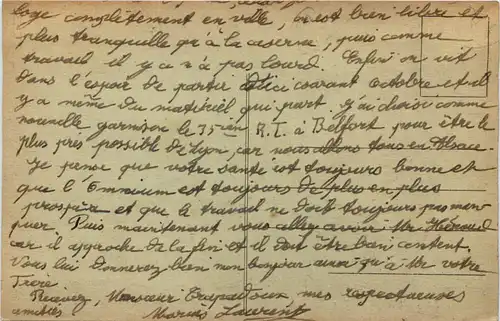 loge complètement en ville, on est bien libre et
plus tranquille qu'à la caserne, puis comme
travail il y en a pas lourd. Enfin on vit
dans l'espoir de partir d'ici courant Octobre et il
y a même du matériel qui part. J'ai choisi comme
nouvelle garnison le 35ième R.I. à Belfort, pour être le
plus près possible de Lyon, car nous allons tous en Alsace.
Je pense que votre santé est toujours bonne et
que l'Omnium est toujours de plus en plus
prospère et que le travail ne doit toujours pas man-
quer. Puis maintenant vous allez avoir Mr
car il approche de la fin et il doit être bien content.
Vous lui donnerez bien mon bonjour ainsi qu'à Mr votre
Frère.
Recevez, Monsieur mes respectueuses
amitiés Marius Laurent